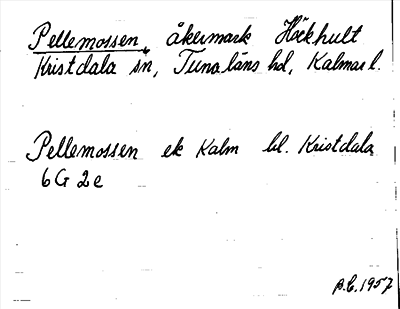 Pellemossen, åkermark Hökhult
Kristdala sn, Tunaläns hd, Kalmar l.
Pellemossen ek Kalm bl. Kristdala
6G 2e
B.C. 1957